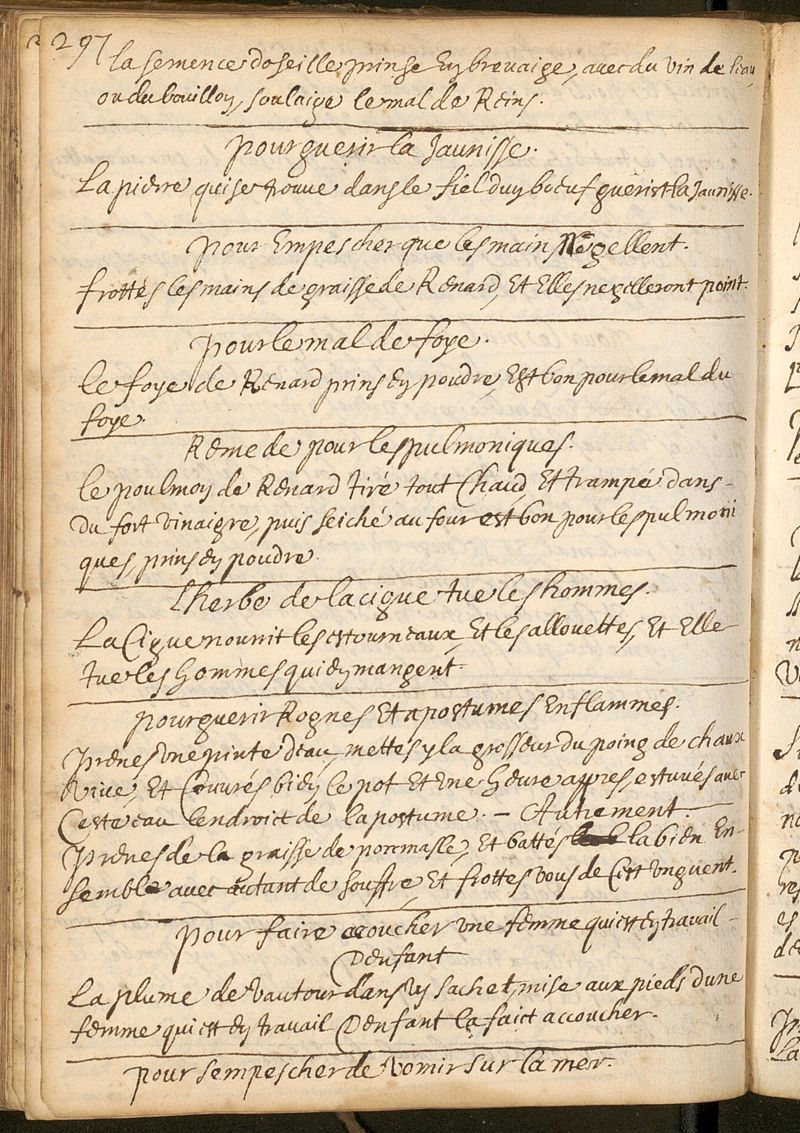 297
la semence doseille prinse En brevaige, avec du vin de l'eau
ou du bouillon, soulaige le mal de Reins.
pour guerir la Jaunisse.
La pierre qui se trouve dans le fiel d'un boeuf guerist la Jaunisse.
pour Empescher que les mains Ne gellent.
frottés les mains de graisse de Renard, Et Elles ne gelleront point.
pour le mal de foye.
le foye de Renard prins en poudre, Est bon pour le mal du
foye.
Remede pour les pulmoniques.
le poulmon de Renard tiré tout Chaud Et trampé dans
du fort vinaigre, puis seiché au four est bon pour les pulmoni
ques, prins en poudre.
l'herbe de la cigue tue les hommes.
La Cigue nourrit les estourneaux, Et les allouettes, Et Elle
tue les hommes qui en mangent.
pour guerir Rognes Et apostumes Enflammés.
prenes une pinte d'eau, mettes y la grosseur du poing de chaux
vive, Et Couvrés bien le pot Et une heure appres, estuvés avec
Ceste eau lendroict de lapostume. - Autrement.
prenes de la graisse de pommasle, Et battés la bien En-
semble avec autant de souffre, Et frottes vous de Cest unguent.
pour faire accoucher une femme qui est en travail
Denfant
La plume de vautour dans un sachet, mise aux pieds dune
femme qui est en travail Denfant la faict accoucher.
pour sempescher de vomir sur la mer.